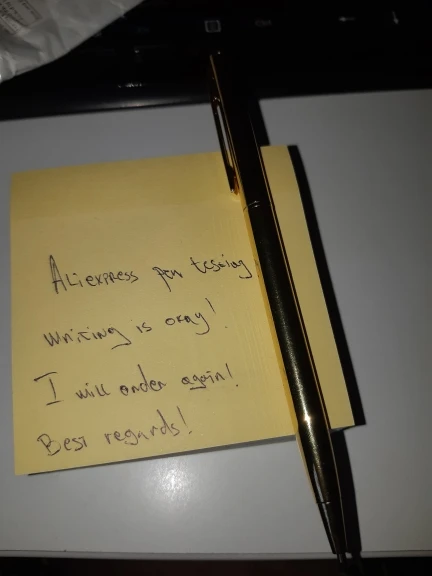 Aliexpress pen testing
Writing is okay!
I will order again!
Best regards!